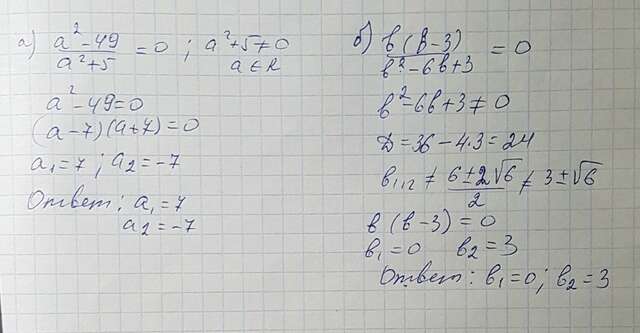 а) a² - 49 / a² + 5 = 0 ; a² + 5 ≠ 0
a ∈ R
a² - 49 = 0
(a - 7)(a + 7) = 0
a₁ = 7 ; a₂ = -7
Ответ: a₁ = 7
a₂ = -7
б) в(в - 3) / в² - 6в + 3 = 0
в² - 6в + 3 ≠ 0
Д = 36 - 4·3 = 24
в₁,₂ ≠ 6 ± 2√6 / 2 ≠ 3 ± √6
в(в - 3) = 0
в₁ = 0 в₂ = 3
Ответ: в₁ = 0; в₂ = 3